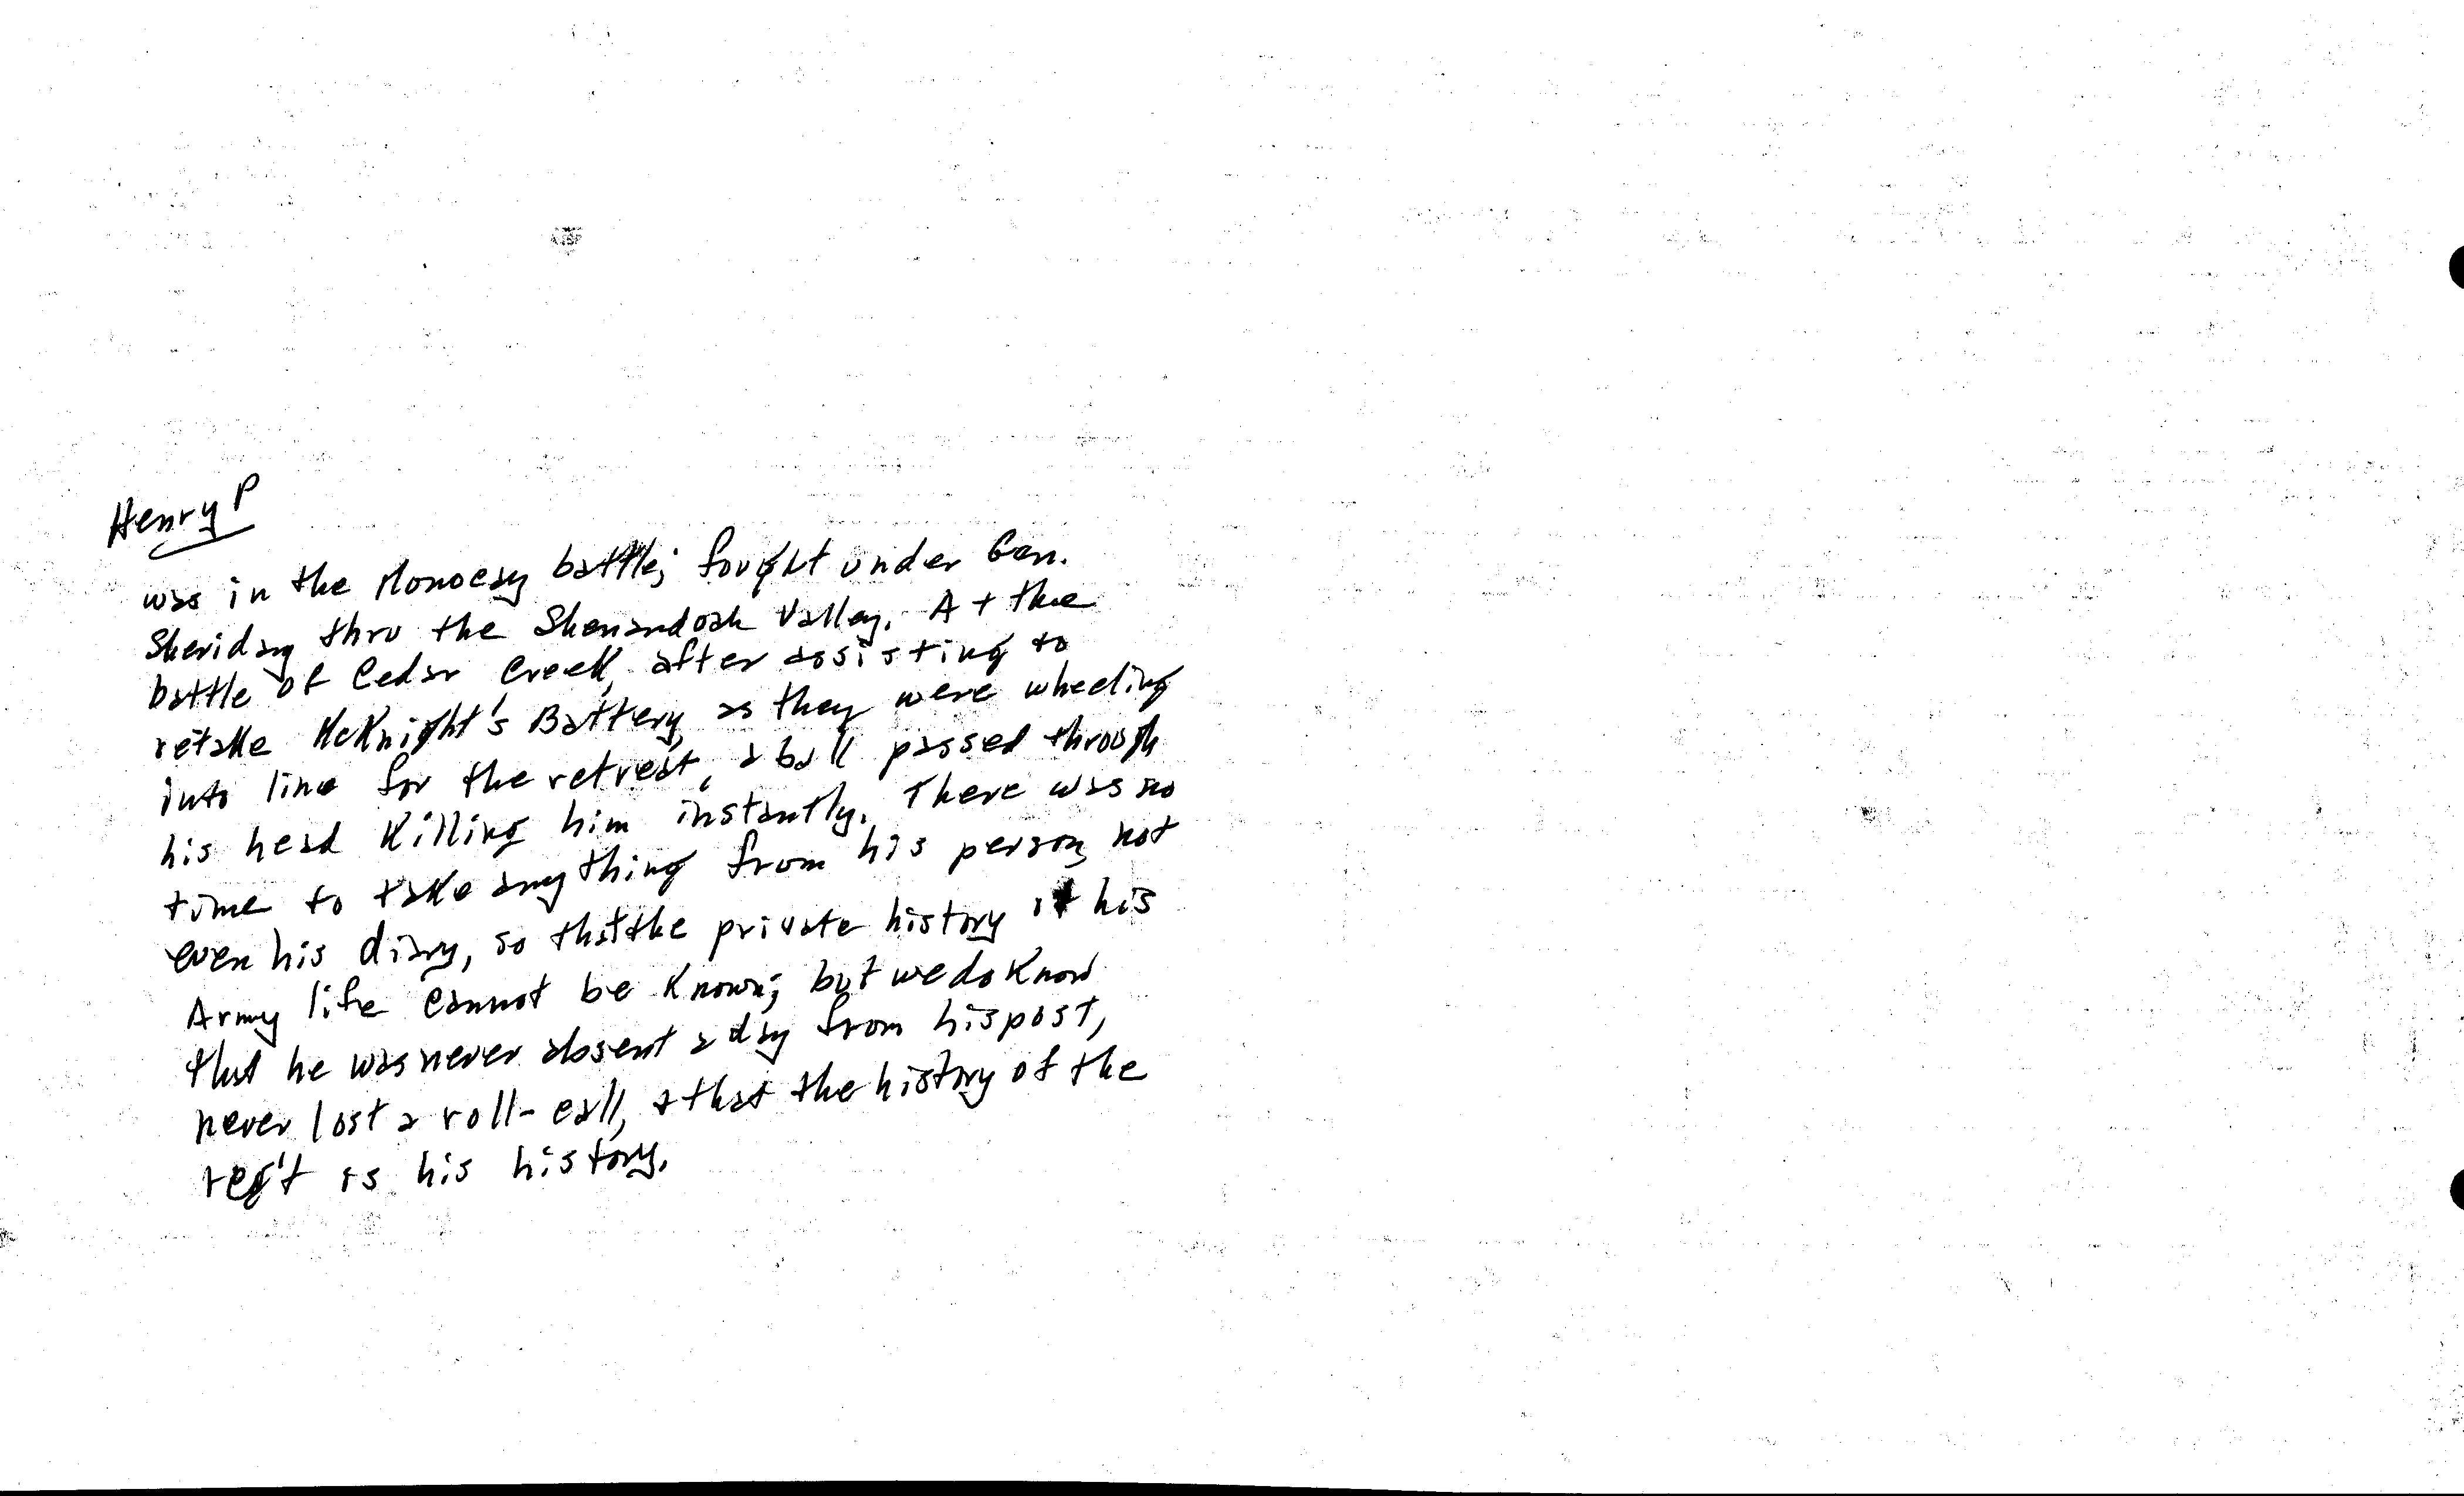 Henry P
was in the Monocacy battle; fought under Gen.
Sheridan thru the Shenandoah Valley. At the
battle of Cedar Creek, after assisting to
retake McKnight's Battery, as they were wheeling
into line for the retreat, a ball passed through
his head killing him instantly. There was no
time to take anything from his person, not
even his diary, so that the private history of his
Army life cannot be known; but we do know
that he was never absent a day from his post,
never lost a roll-call, & that the history of the
reg't is his history.